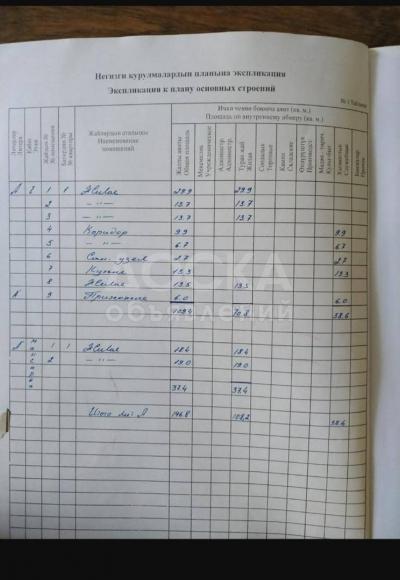 Негизги курулмалардын планына экспликация
Экспликация к плану основных строений
№ 1 Таблица
Ички ченөө боюнча аянт (кв. м.)
Площадь по внутреннему обмеру (кв. м.)
Литерлер Литера
Кабат Этаж
Жайдын № № помещения
Батирдин № № квартиры
Жайлардын аталышы Наименование помещений
Жалпы аянты Общая площадь
Мекемелик Учрежденческие
Админстр. Администр.
Турак жай Жилая
Соодалык Торговые
Кампа Складские
Өндүрүштүк Производст.
А 2 1 1 Жилая 29.9 29.9
2 – " – 13.7 13.7
3 – " – 13.7 13.7
4 Коридор 9.9 9.9
5 – " – 6.7 6.7
6 Сан. узел 2.7 2.7
7 Кухня 13.3 13.3
8 Жилая 13.5 13.5
А 9 Прихожая 6.0 6.0
109.4 70.8 38.6
А мансарда 1 1 Жилая 18.4 18.4
2 – " – 19.0 19.0
37.4 37.4
Итого лит А 146.8 108.2 38.6
ДОСКА
ОБЪЯВЛЕНИЙ